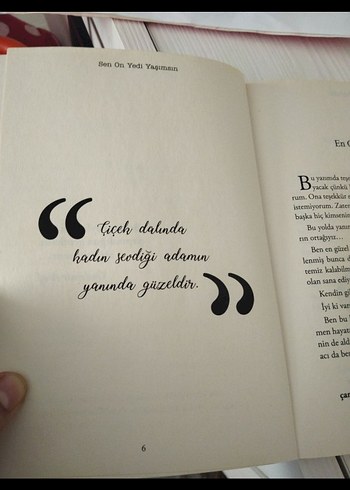 Sen On Yedi Yaşımsın
“Çiçek dalında
kadın sevdiği adamın
yanında güzeldir.”
6
En
Bu yanımda
yacak çünkü
rum. Ona teşekkür
istemiyorum. Zaten
başka hiç kimsenin
Bu yolda
rın ortağıyız...
Ben en güzel
lenmiş bunca
temiz
olan sana
Kendin
İyi ki
Ben bu
nin de
acı da